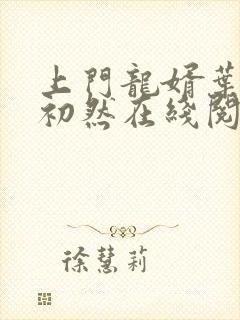 上門龍婿葉
初然在綫閱
徐慧莉